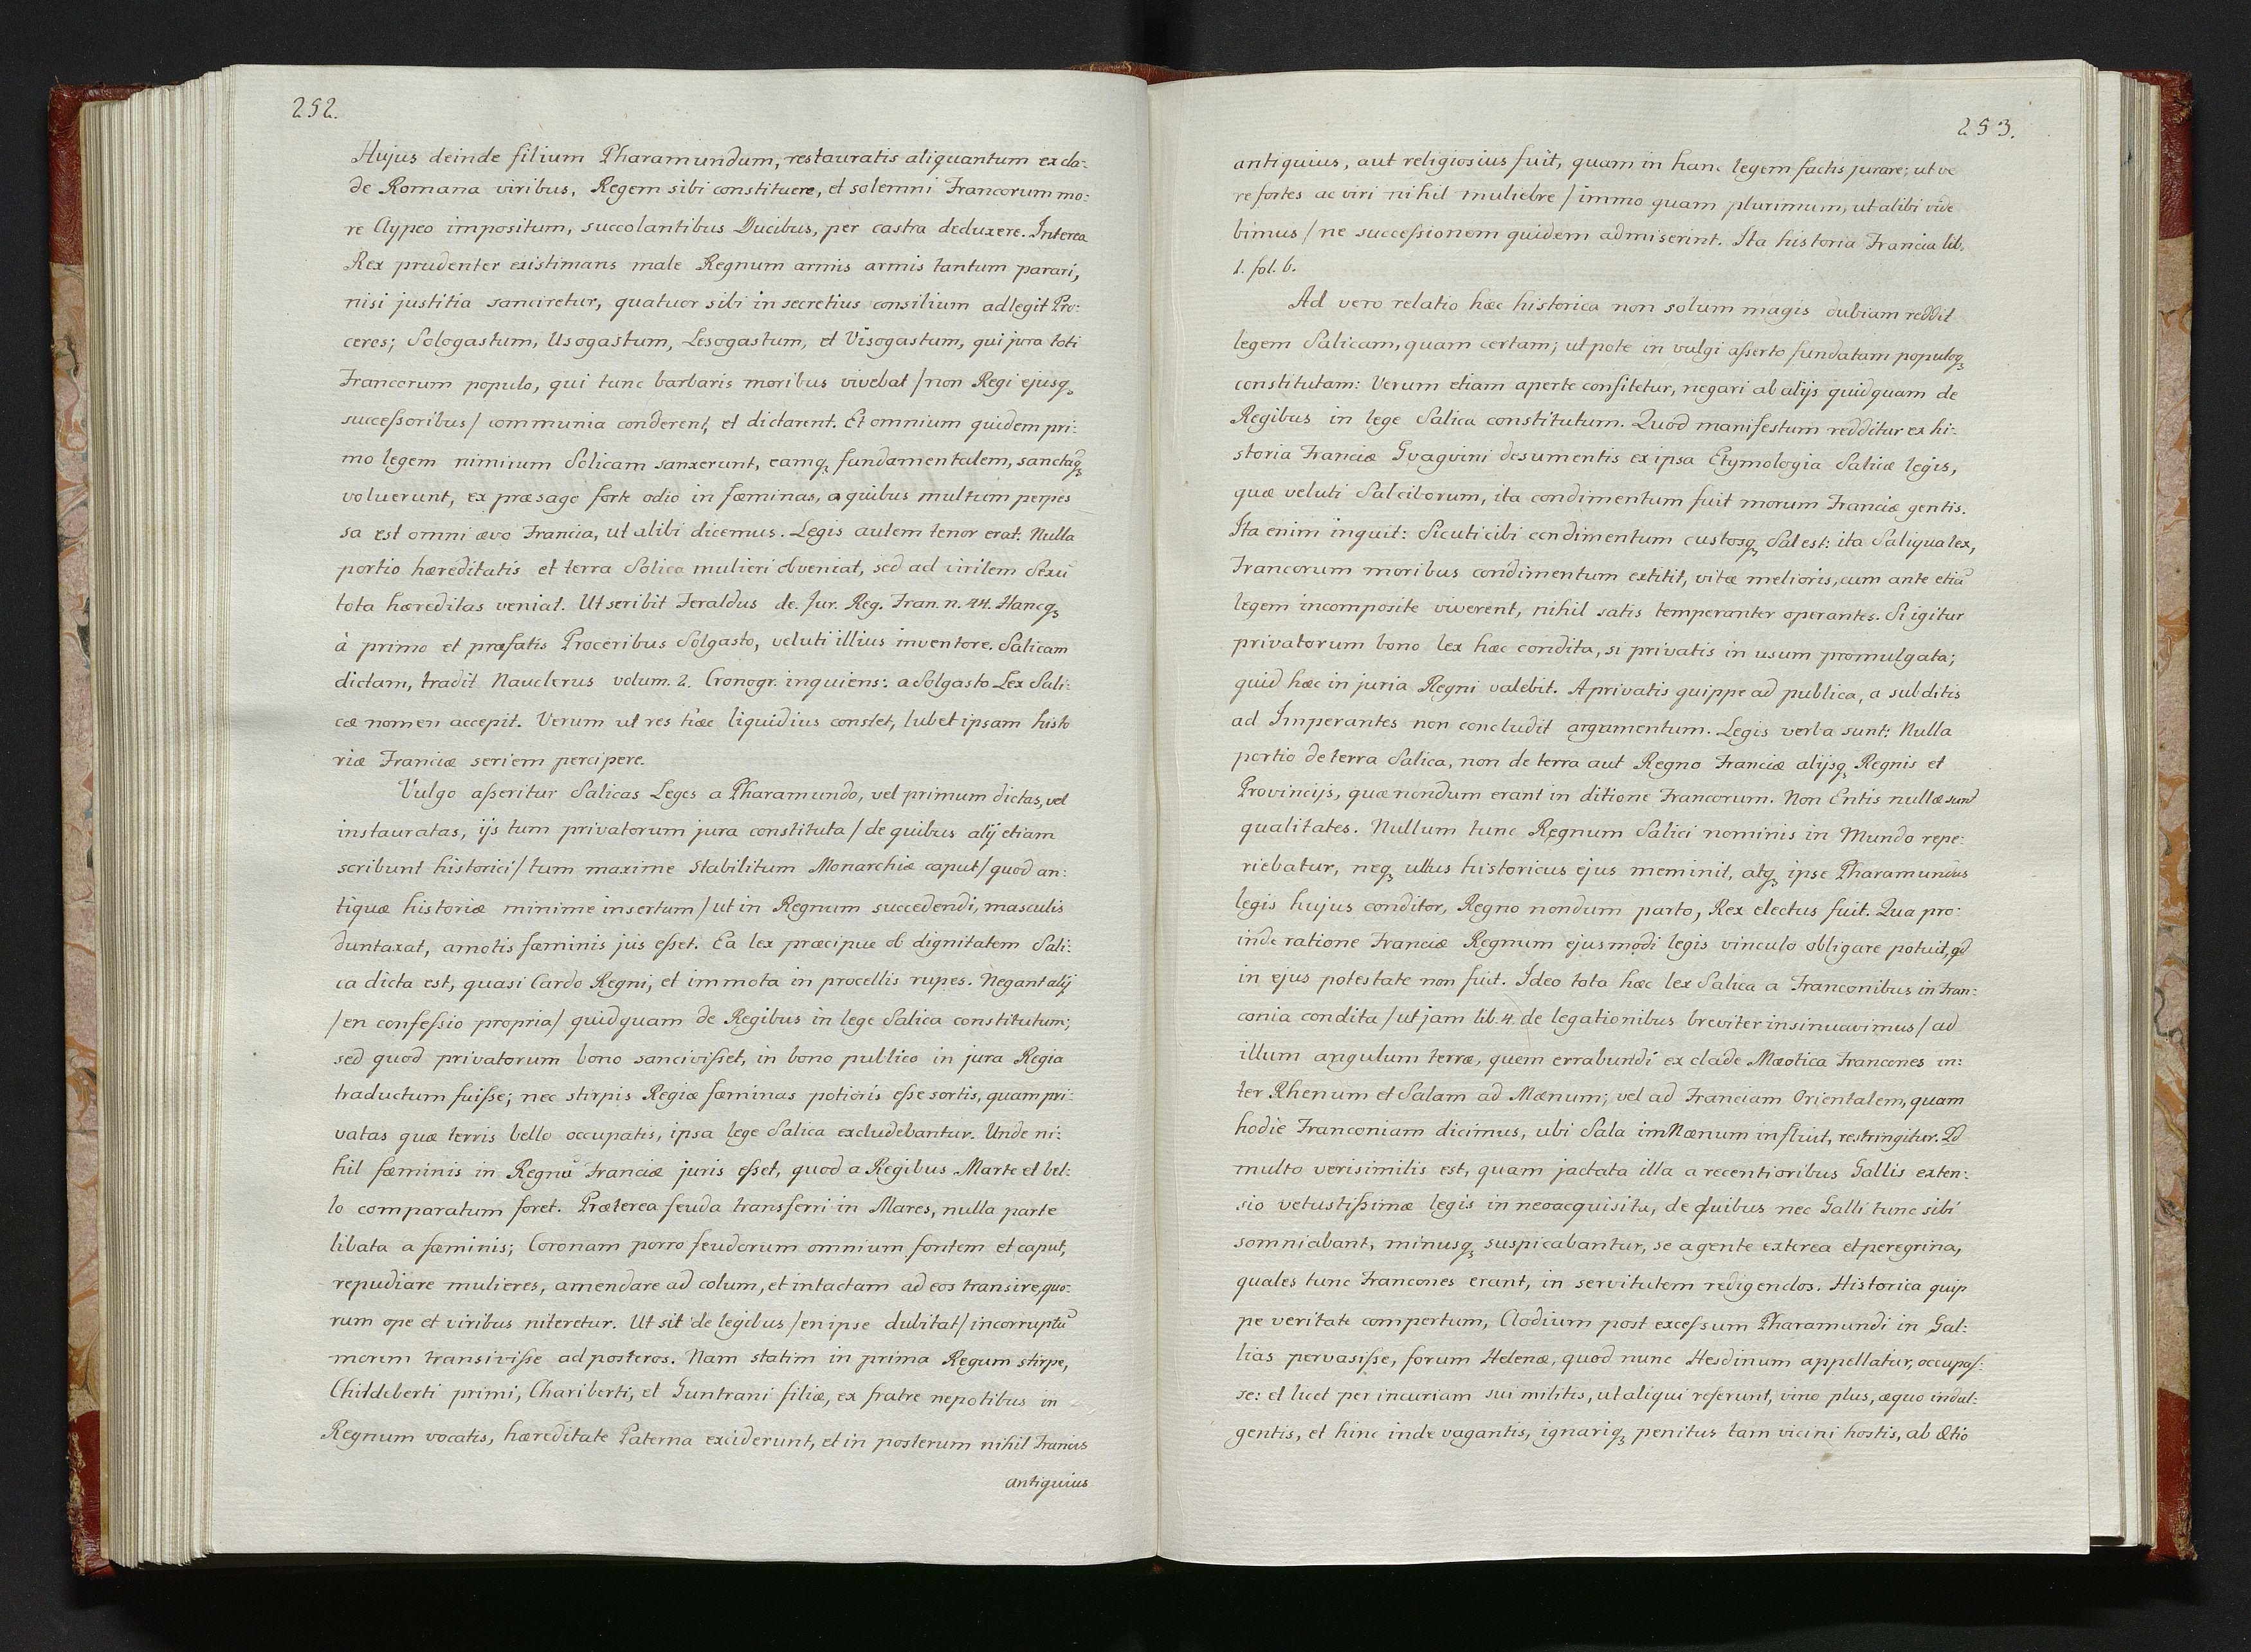 252.
Hujus deinde filium Pharamundum, restauratis aliquantum ex cla:
de Romana viribus, Regem sibi constituere, et solemni Francorum mo:
re Clypeo impositum, succolantibus Ducibus, per castra deduxere. Interea
Rex prudenter existimans male Regnum armis armis tantum parari,
nisi justitia sanciretur, quatuor sibi in secretius consilium adlegit Pro:
ceres; Sologastum, Usogastum, Lesogastum, et Visogastum, qui jura toti
Francorum populo, qui tunc barbaris moribus vivebat /non Regi ejusq₃
successoribus/ communia conderent, et dictarent. Et omnium quidem pri:
mo legem nimirum Solicam sanxerunt, eamq₃ fundamentalem, sanctāq₃
voluerunt, ex præsago forte odio in fæminas, a quibus multum perpes
sa est omni ævo Francia, ut alibi dicemus. Legis autem tenor erat. Nulla
portio hæreditatis et terra Solica mulieri obveniat, sed ad virilem Sexū
tota hæreditas veniat. Ut scribit Feraldus de Jur. Reg. Fran. n. 44. Hancq₃
à primo et præfatis Proceribus Solgasto, veluti illius inventore. Salicam
dictam, tradit Nauclerus volum. 2. Cronogr. inquiens: a Solgasto Lex Sali:
cæ nomen accepit. Verum ut res hæc liquidius constet, lubet ipsam histo
riæ Franciæ seriem percipere.
Vulgo asseritur Salicas Leges a Pharamundo, vel primum dictas, vel
instauratas, ijs tum privatorum jura constituta /de quibus alij etiam
scribunt historici/ tum maxime stabilitum Monarchiæ caput /quod an:
tiquæ historiæ minime insertum/ ut in Regnum succedendi, masculis
duntaxat, amotis fæminis jus esset. Ea lex præcipue ob dignitatem Sali:
ca dicta est, quasi Cardo Regni, et immota in procellis rupes. Negant alij
/en confessio propria/ quidquam de Regibus in lege Salica constitutum;
sed quod privatorum bono sancivisset, in bono publico in jura Regia
traductum fuisse; nec stirpis Regiæ fæminas potioris esse sortis, quam pri:
vatas quæ terris bello occupatis, ipsa lege Salica excludebantur. Unde ni:
hil fæminis in Regnū Franciæ juris esset, quod a Regibus Marte et bel:
lo comparatum foret. Præterea feuda transferri in Mares, nulla parte
libata a fæminis; Coronam porro feudorum omnium fontem et caput,
repudiare mulieres, amendare ad colum, et intactam ad eos transire, quo:
rum ope et viribus niteretur. Ut sit de legibus /en ipse dubitat/ incorruptū
morem transivisse ad posteros. Nam statim in prima Regum stirpe,
Childeberti primi, Chariberti, et Guntrani filiæ, ex fratre nepotibus in
Regnum vocatis, hæreditate Paterna exciderunt, et in posterum nihil Francis
antiquius
253.
antiquius, aut religiosius fuit, quam in hanc legem factis jurare; ut ve
re fortes ac viri nihil muliebre /immo quam plurimum, ut alibi vide
bimus/ ne successionem quidem admiserint. Ita historia Francia lib.
1. fol. 6.
Ad vero relatio hæc historica non solum magis dubiam reddit
legem Salicam, quam certam; utpote in vulgi asserto fundatam populoq₃
constitutam: Verum etiam aperte confitetur, negari ab alijs quidquam de
Regibus in lege Salica constitutum. Quod manifestum redditur ex hi:
storia Franciæ Gvagvini desumentis ex ipsa Etymologia Salicæ legis,
quæ veluti Sal ciborum, ita condimentum fuit morum Franciæ gentis.
Ita enim inquit: Sicuti cibi condimentum custosq₃ Sal est: ita Saliqua lex,
Francorum moribus condimentum extitit, vitæ melioris, cum ante etiā
legem incomposite viverent, nihil satis temperanter operantes. Si igitur
privatorum bono lex hæc condita, si privatis in usum promulgata;
quid hæc in juria Regni valebit. A privatis quippe ad publica, a subditis
ad Imperantes non concludit argumentum. Legis verba sunt: Nulla
portio de terra Salica, non de terra aut Regno Franciæ alijsq₃ Regnis et
Provincijs, quæ nondum erant in ditione Francorum. Non Entis nullæ sunt
qualitates. Nullum tunc Regnum Salici nominis in Mundo repe:
riebatur, neq₃ ullus historicus ejus meminit, atq₃ ipse Pharamundus
legis hujus conditor, Regno nondum parto, Rex electus fuit. Qua pro:
inde ratione Franciæ Regnum ejusmodi legis vinculo obligare potuit, qd
in ejus potestate non fuit. Ideo tota hæc lex Salica a Franconibus in Fran:
conia condita /ut jam lib. 4. de legationibus breviter insinuavimus/ ad
illum angulum terræ, quem errabundi ex clade Mæotica Francones in:
ter Rhenum et Salam ad Mænum; vel ad Franciam Orientalem, quam
hodie Franconiam dicimus, ubi Sala im Mænum influit, restringitur. Id
multo verisimilis est, quam jactata illa a recentioribus Gallis exten:
sio vetustissimæ legis in neoacquisita, de quibus nec Galli tunc sibi
somniabant, minusq₃ suspicabantur, se a gente exterea et peregrina,
quales tunc Francones erant, in servitutem redigendos. Historica quip
pe veritate compertum, Clodium post excessum Pharamundi in Gal:
lias pervasisse, forum Helenæ, quod nunc Hesdinum appellatur, occupas:
se: et licet per incuriam sui militis, ut aliqui referunt, vino plus, æquo indul:
gentis, et hinc inde vagantis, ignariq₃ penitus tam vicini hostis, ab Ætio